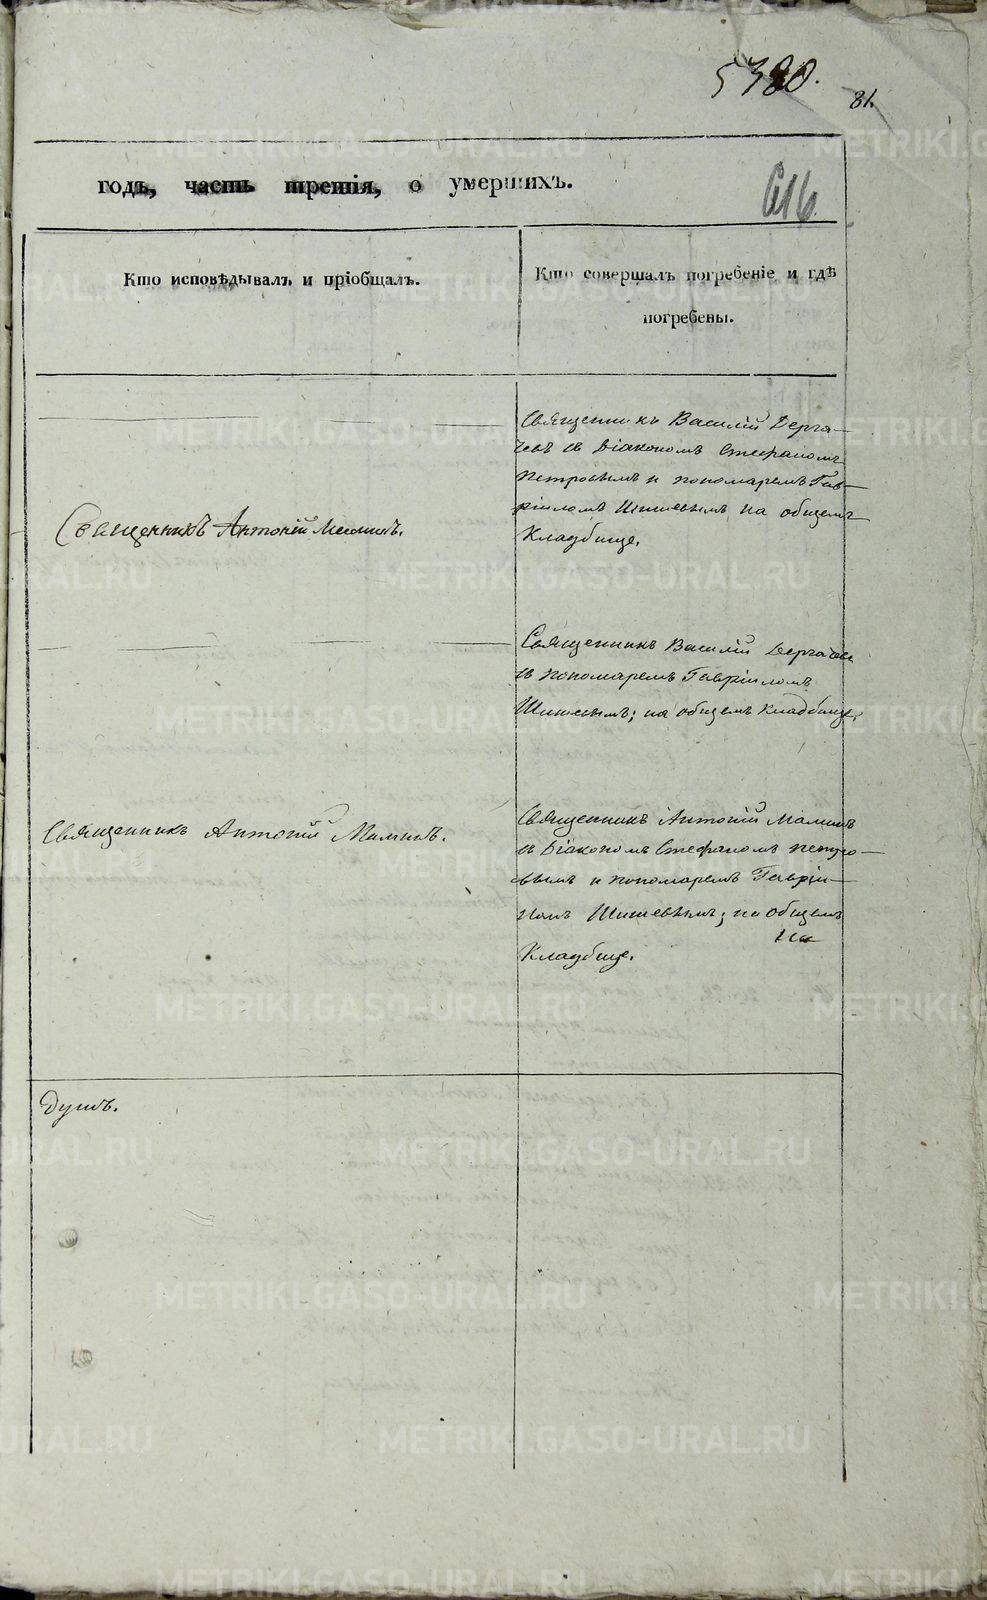 5380.
81.
годъ, часть третія, о умершихъ.
616
Кто исповѣдывалъ и пріобщалъ.
Кто совершалъ погребеніе и гдѣ
погребены.
Священникъ Василій Дерга-
чевъ съ Діакономъ Стефаномъ
Петровымъ и пономаремъ Гав-
ріиломъ Шишевымъ на общемъ
Кладбище.
Священникъ Антоній Маминъ.
Священникъ Василій Дергачевъ
съ пономаремъ Гавріиломъ
Шишевымъ; на общемъ кладбище.
Священникъ Антоній Маминъ.
Священникъ Антоній Маминъ
съ Діакономъ Стефаномъ Петро-
вымъ и пономаремъ Гаврій-
ломъ Шишевымъ; на общемъ
Кладбище.
Душъ.
METRIKI.GASO-URAL.RU